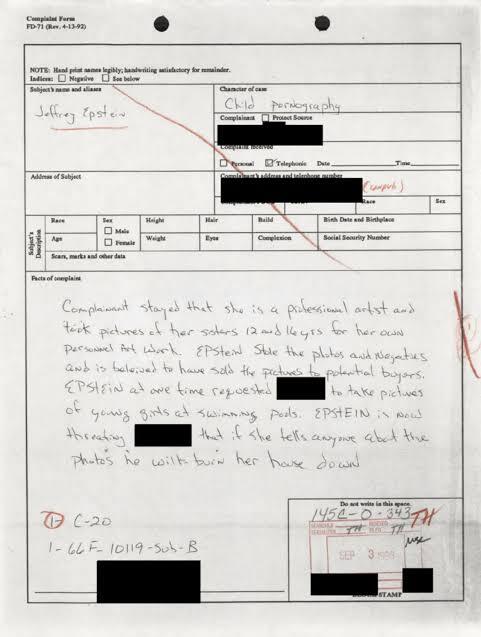 Complaint Form
FD-71 (Rev. 4-13-92)
NOTE: Hand print names legibly; handwriting satisfactory for remainder.
Indices: Negative See below
Subject's name and aliases
Jeffrey Epstein
Character of case
Child pornography
Complainant Protect Source
Complaint received
Personal Telephonic Date Time
Address of Subject
Complainant's address and telephone number
Race Sex
Subject's Description
Race Sex Height Hair Build Birth Date and Birthplace
Male
Female
Age Weight Eyes Complexion Social Security Number
Scars, marks and other data
Facts of complaint
Complainant stayed that she is a professional artist and
took pictures of her sisters 12 and 16 yrs for her own
personnel Art Work. EPStein Stole the photos and negatives
and is beleived to have sold the pictures to potential buyers.
EPSTEIN at one time requested to take pictures
of young girls at swimming pools. EPSTEIN is now
that if she tells anyone about the
photos he will burn her house down
1- C-20
1- 66F-10119-Sub-B
Do not write in this space.
145C-0-343
TH
SEARCHED INDEXED
SERIALIZED TH FILED TH
SEP 3 1996
BLOCK STAMP